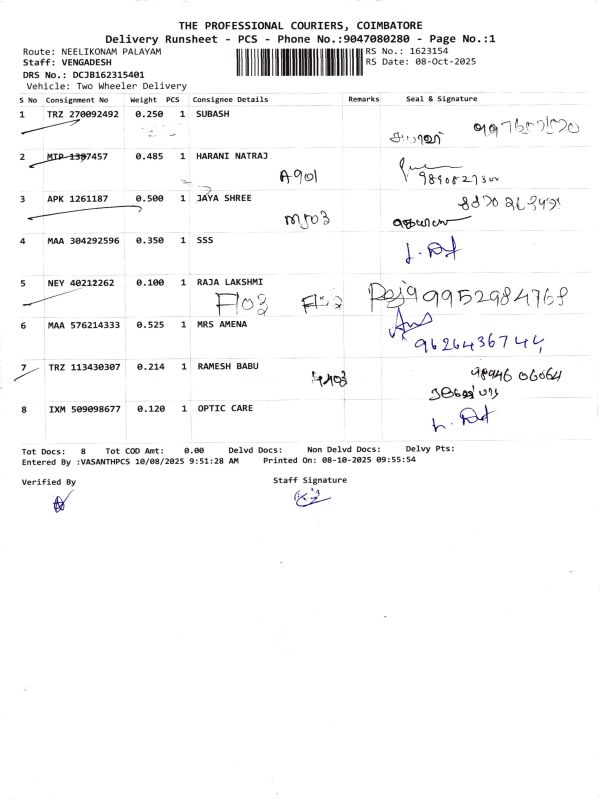 THE PROFESSIONAL COURIERS, COIMBATORE
Delivery Runsheet - PCS - Phone No.:9047080280 - Page No.:1
Route: NEELIKONAM PALAYAM RS No.: 1623154
Staff: VENGADESH RS Date: 08-Oct-2025
DRS No.: DCJB162315401
Vehicle: Two Wheeler Delivery
S No Consignment No Weight PCS Consignee Details Remarks Seal & Signature
1 TRZ 270092492 0.250 1 SUBASH
2 MTP 1307457 0.485 1 HARANI NATRAJ
A901
3 APK 1261187 0.500 1 JAYA SHREE
M503
4 MAA 304292596 0.350 1 SSS
5 NEY 40212262 0.100 1 RAJA LAKSHMI
F103 Raja 9952984768
6 MAA 576214333 0.525 1 MRS AMENA
9626436744
7 TRZ 113430307 0.214 1 RAMESH BABU
98946 06064
8 IXM 509098677 0.120 1 OPTIC CARE
Tot Docs: 8 Tot COD Amt: 0.00 Delvd Docs: Non Delvd Docs: Delvy Pts:
Entered By :VASANTHPCS 10/08/2025 9:51:28 AM Printed On: 08-10-2025 09:55:54
Verified By Staff Signature